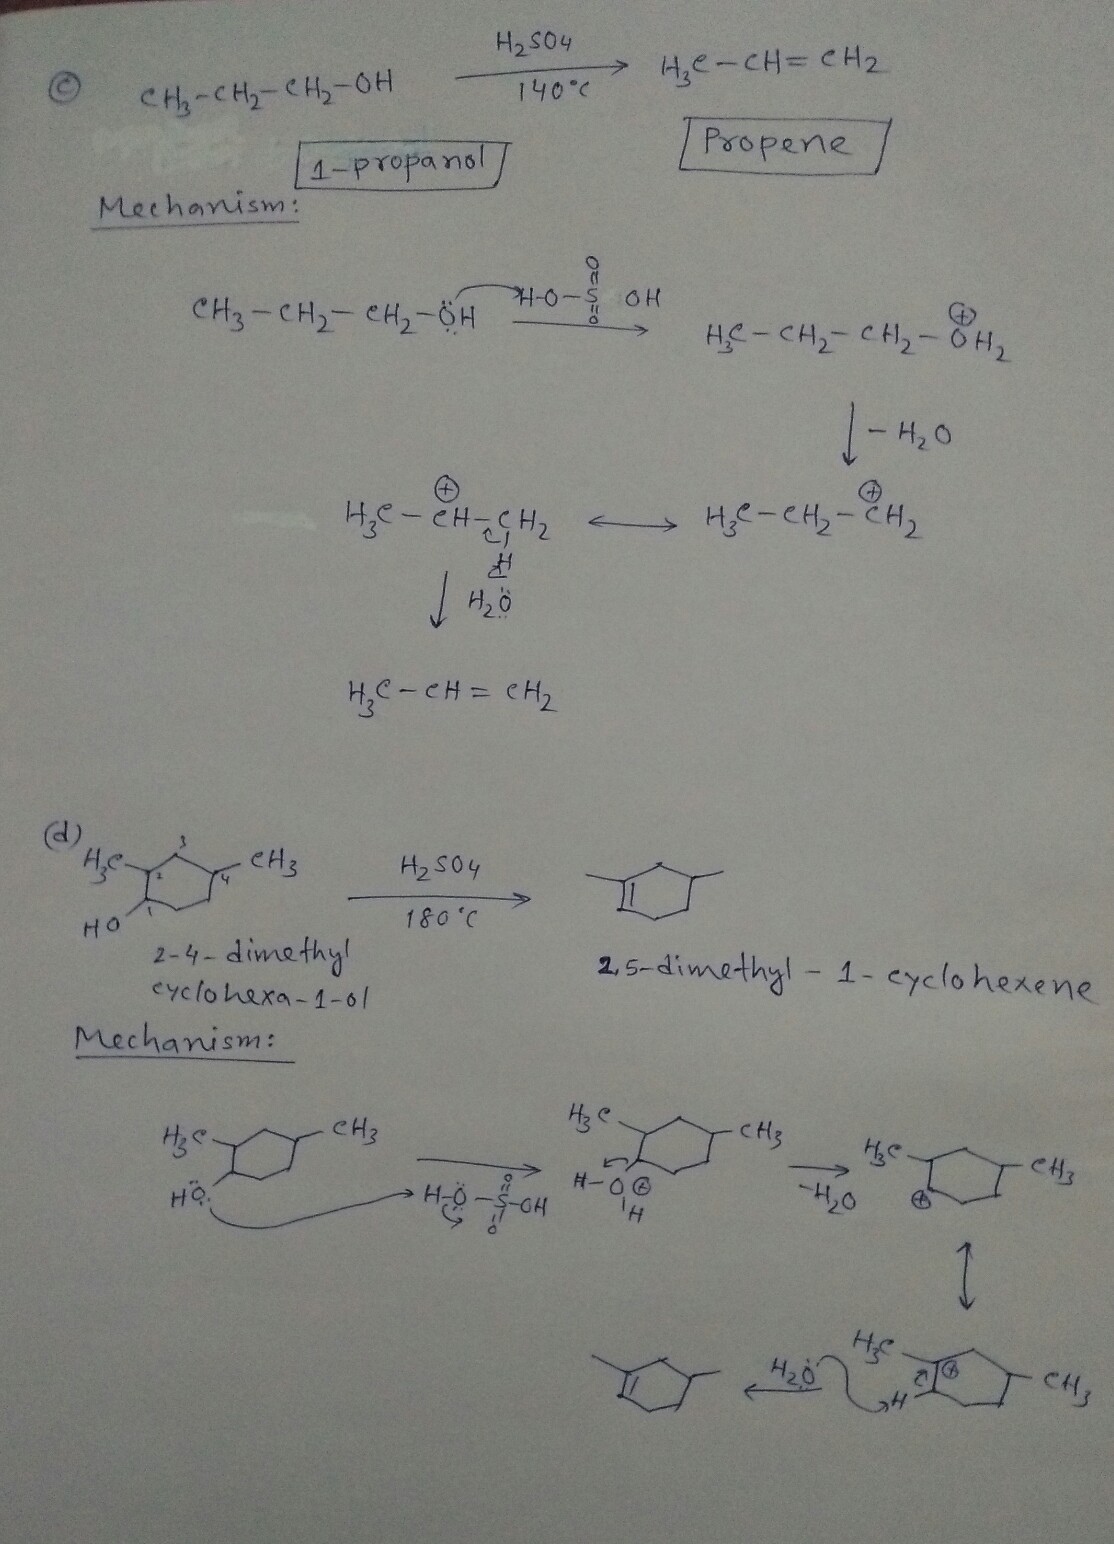 (c) CH₃-CH₂-CH₂-OH H₂SO4 140°C H₃C-CH=CH₂
1-propanol Propene
Mechanism:
CH₃-CH₂-CH₂-ÖH H-O-S OH O O H₃C-CH₂-CH₂-OH₂ ⊕
-H₂O
H₃C-CH-CH₂ ⊕ H H₃C-CH₂-CH₂ ⊕
H₂Ö
H₃C-CH=CH₂
(d) H₃C 2 3 4 CH₃ HO 1 H₂SO4 180°C
2-4-dimethyl
cyclohexa-1-ol
2,5-dimethyl-1-cyclohexene
Mechanism:
H₃C CH₃ HÖ H-Ö-S-OH O O H₃C CH₃ H-O ⊕ H -H₂O H₃C CH₃ ⊕
H₂Ö H₃C ⊕ H CH₃